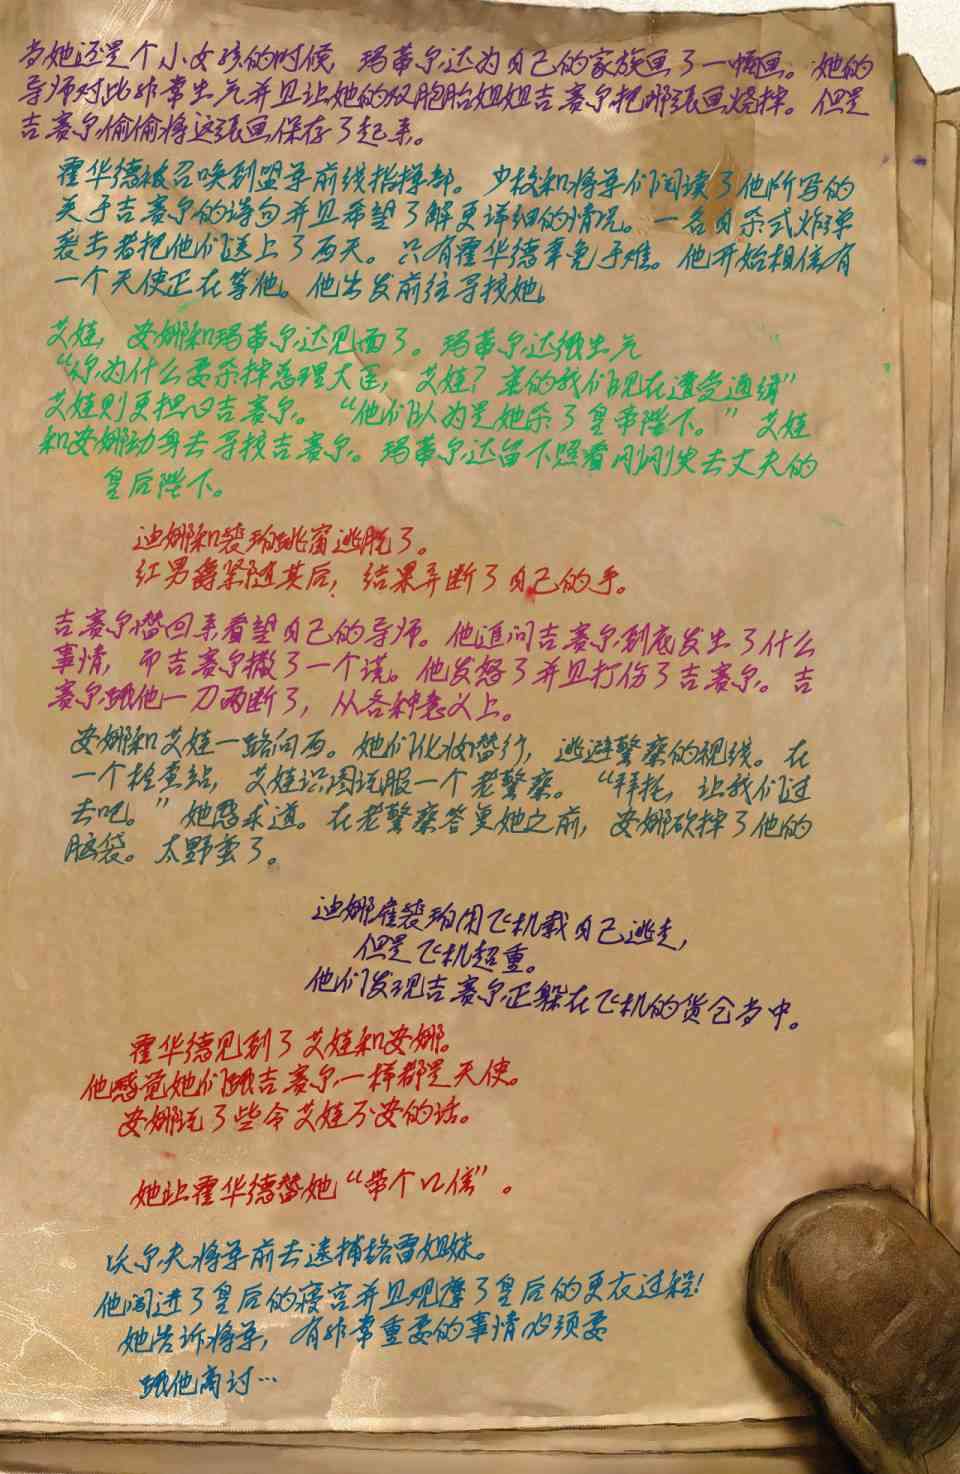 当她还是个小女孩的时候，玛蒂尔达为自己的家族画了一幅画。她的
导师对此非常生气并且让她的双胞胎姐姐吉赛尔把那张画烧掉。但是
吉赛尔偷偷将这张画保存了起来。
霍华德被召唤到盟军前线指挥部。少校和将军们阅读了他所写的
关于吉赛尔的诗句并且希望了解更详细的情况。一名自杀式炸弹
袭击者把他们送上了西天。只有霍华德幸免于难。他开始相信有
一个天使正在等他。他出发前往寻找她。
艾娃，安娜和玛蒂尔达见面了。玛蒂尔达很生气
“你为什么要杀掉总理大臣，艾娃？害的我们现在遭受通缉”
艾娃则更担心吉赛尔。“他们认为是她杀了皇帝陛下。”艾娃
和安娜动身去寻找吉赛尔。玛蒂尔达留下照看刚刚失去丈夫的
皇后陛下。
迪娜和裴珀跳窗逃脱了。
红男爵紧随其后，结果弄断了自己的手。
吉赛尔潜回来看望自己的导师。他追问吉赛尔到底发生了什么
事情，而吉赛尔撒了一个谎。他发怒了并且打伤了吉赛尔。吉
赛尔跟他一刀两断了，从各种意义上。
安娜和艾娃一路向西。她们化妆潜行，逃避警察的视线。在
一个检查站，艾娃试图说服一个老警察。“拜托，让我们过
去吧。”她恳求道。在老警察答复她之前，安娜砍掉了他的
脑袋。太野蛮了。
迪娜雇裴珀用飞机载自己逃走，
但是飞机超重。
他们发现吉赛尔正躲在飞机的货仓当中。
霍华德见到了艾娃和安娜。
他感觉她们跟吉赛尔一样都是天使。
安娜说了些令艾娃不安的话。
她让霍华德替她“带个口信”。
沃尔夫将军前去逮捕格雷姐妹。
他闯进了皇后的寝宫并且观摩了皇后的更衣过程！
她告诉将军，有非常重要的事情必须要
跟他商讨…